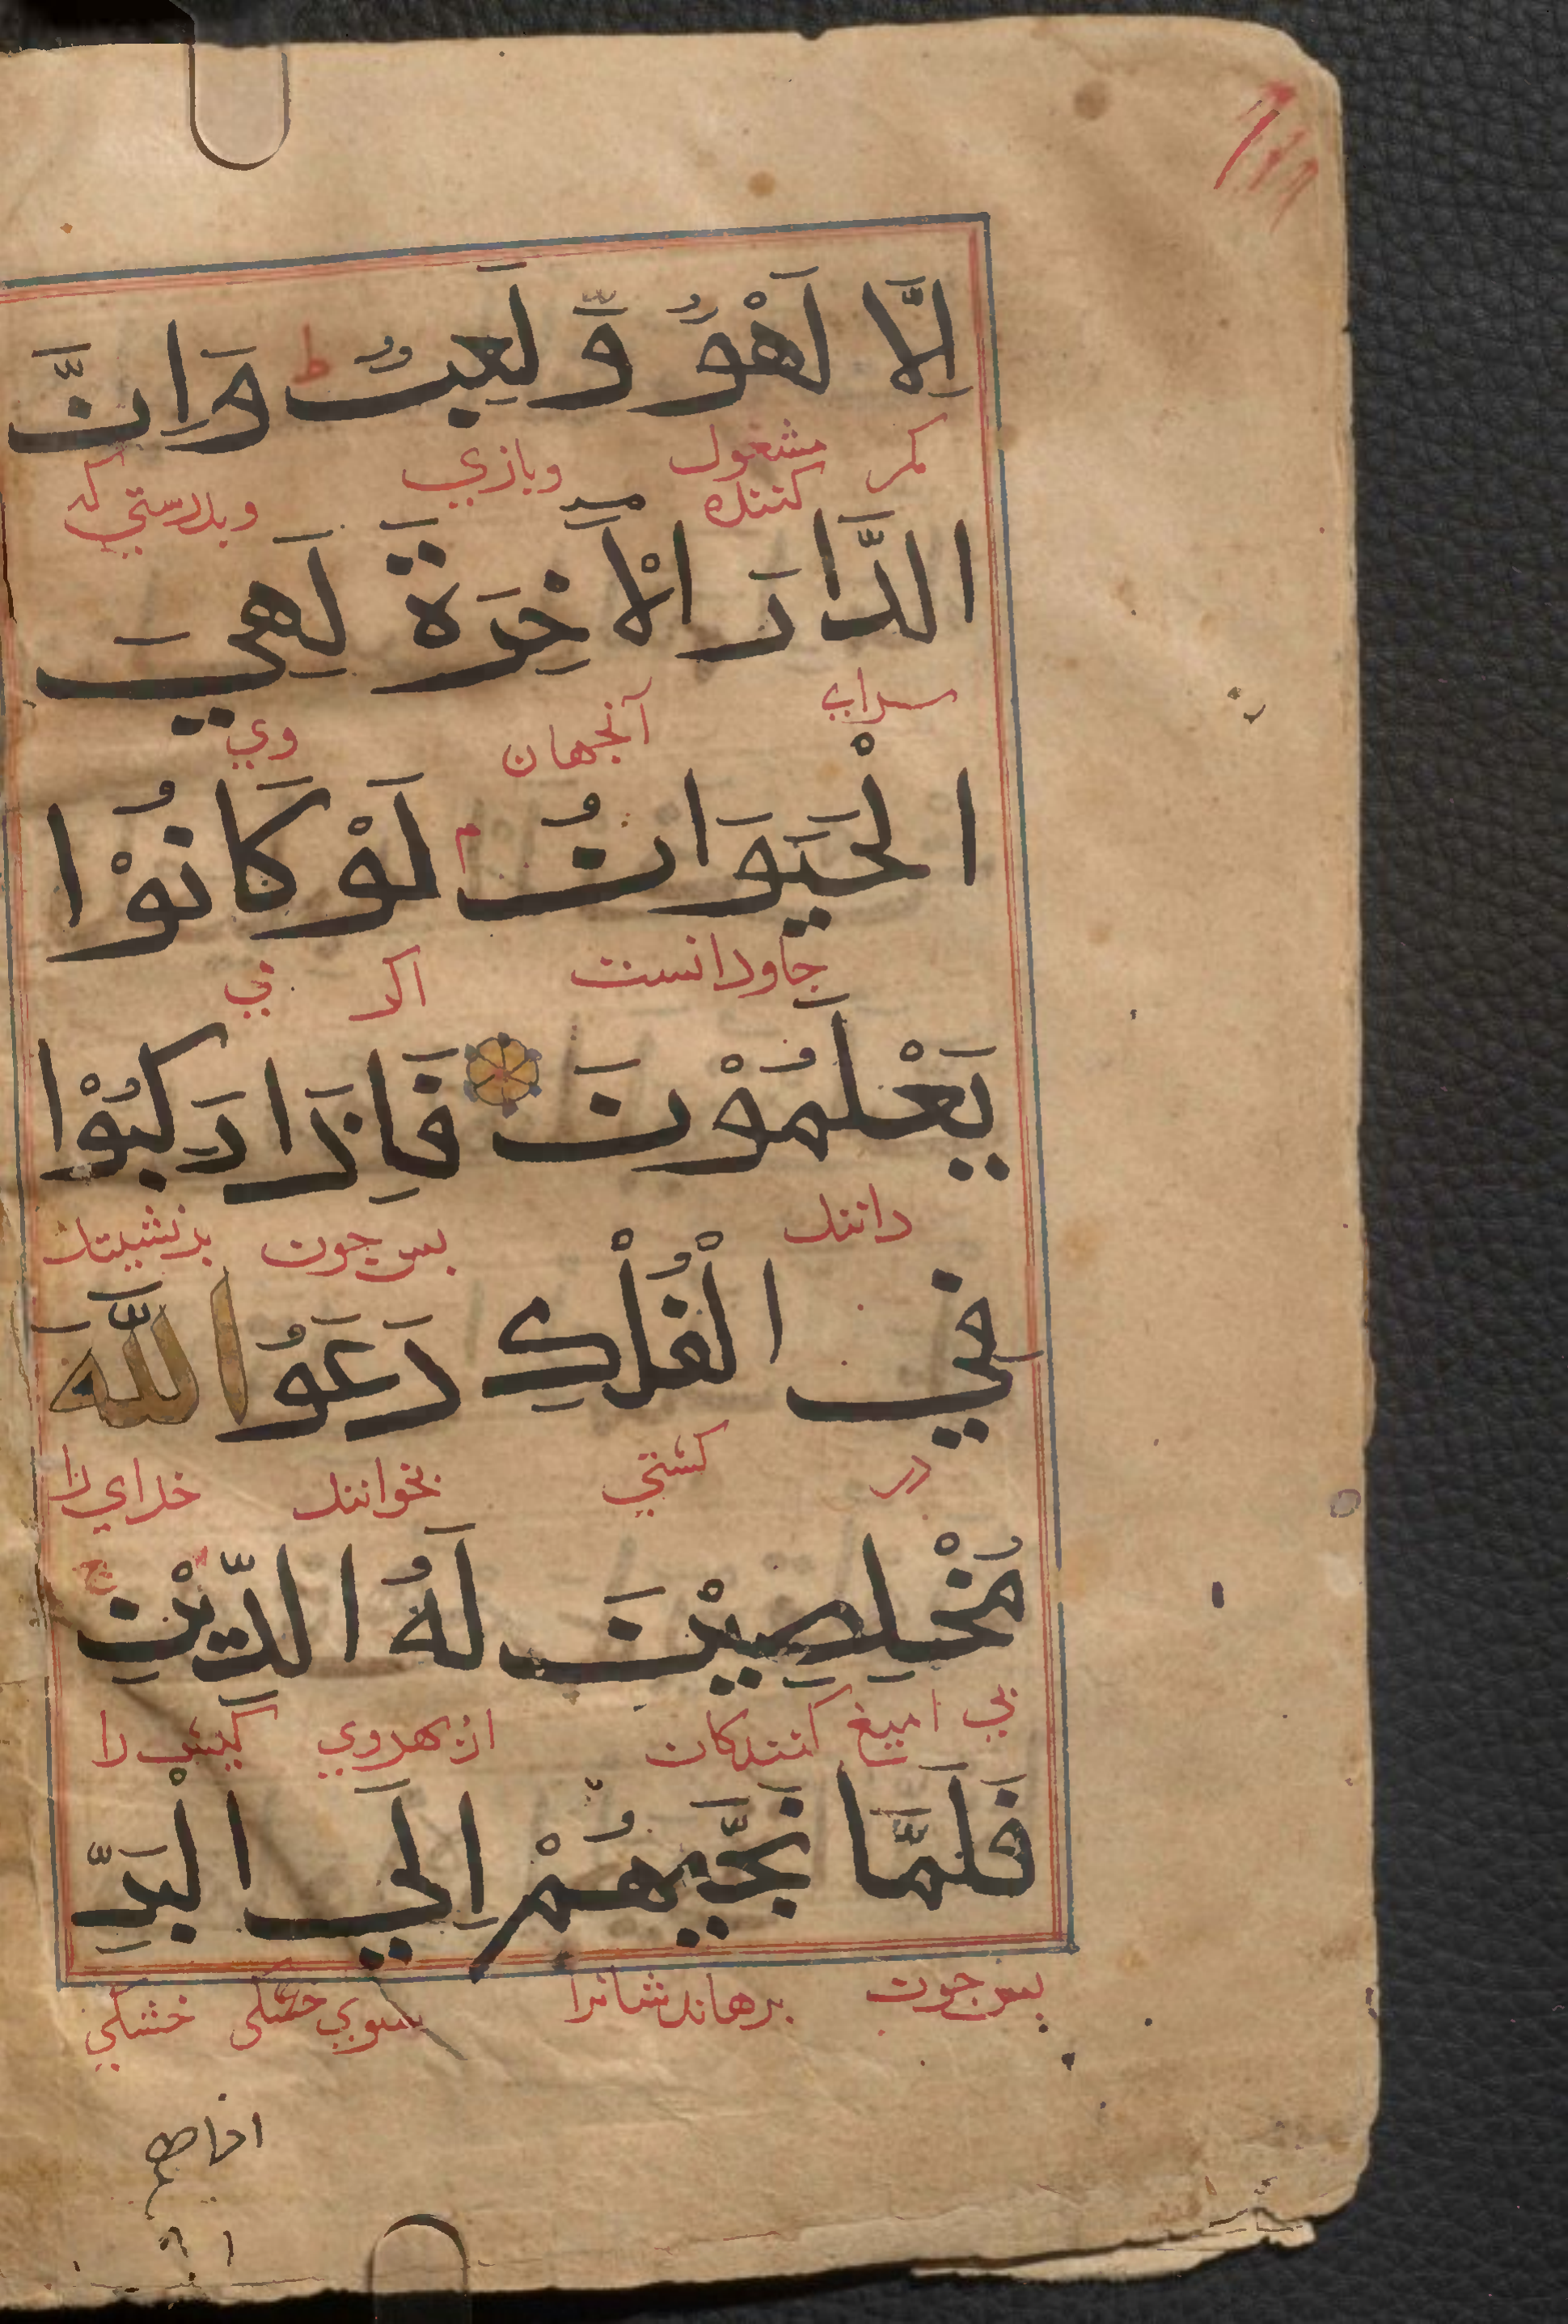 اِلَّا لَهْوٌ وَّ لَعِبٌ ط وَ اِنَّ
مكر مشغول كننده وبازي وبدرستي كه
الدَّارَ الْاٰخِرَةَ لَهِيَ
سراي آنجهان وي
الْحَيَوَانُ م لَوْ كَانُوْا
جاودانست اكر ني
يَعْلَمُوْنَ فَاِذَا رَكِبُوْا
دانند بس جون برنشينند
فِي الْفُلْكِ دَعَوُا اللّٰهَ
در كشتي بخوانند خداي را
مُخْلِصِيْنَ لَهُ الدِّيْنَ ج
بي اميغ كنندكان از بهروي كيش را
فَلَمَّا نَجّٰيهُمْ اِلَي الْبَرِّ
بس جون برهاندشانرا سوي خشكي خشكي